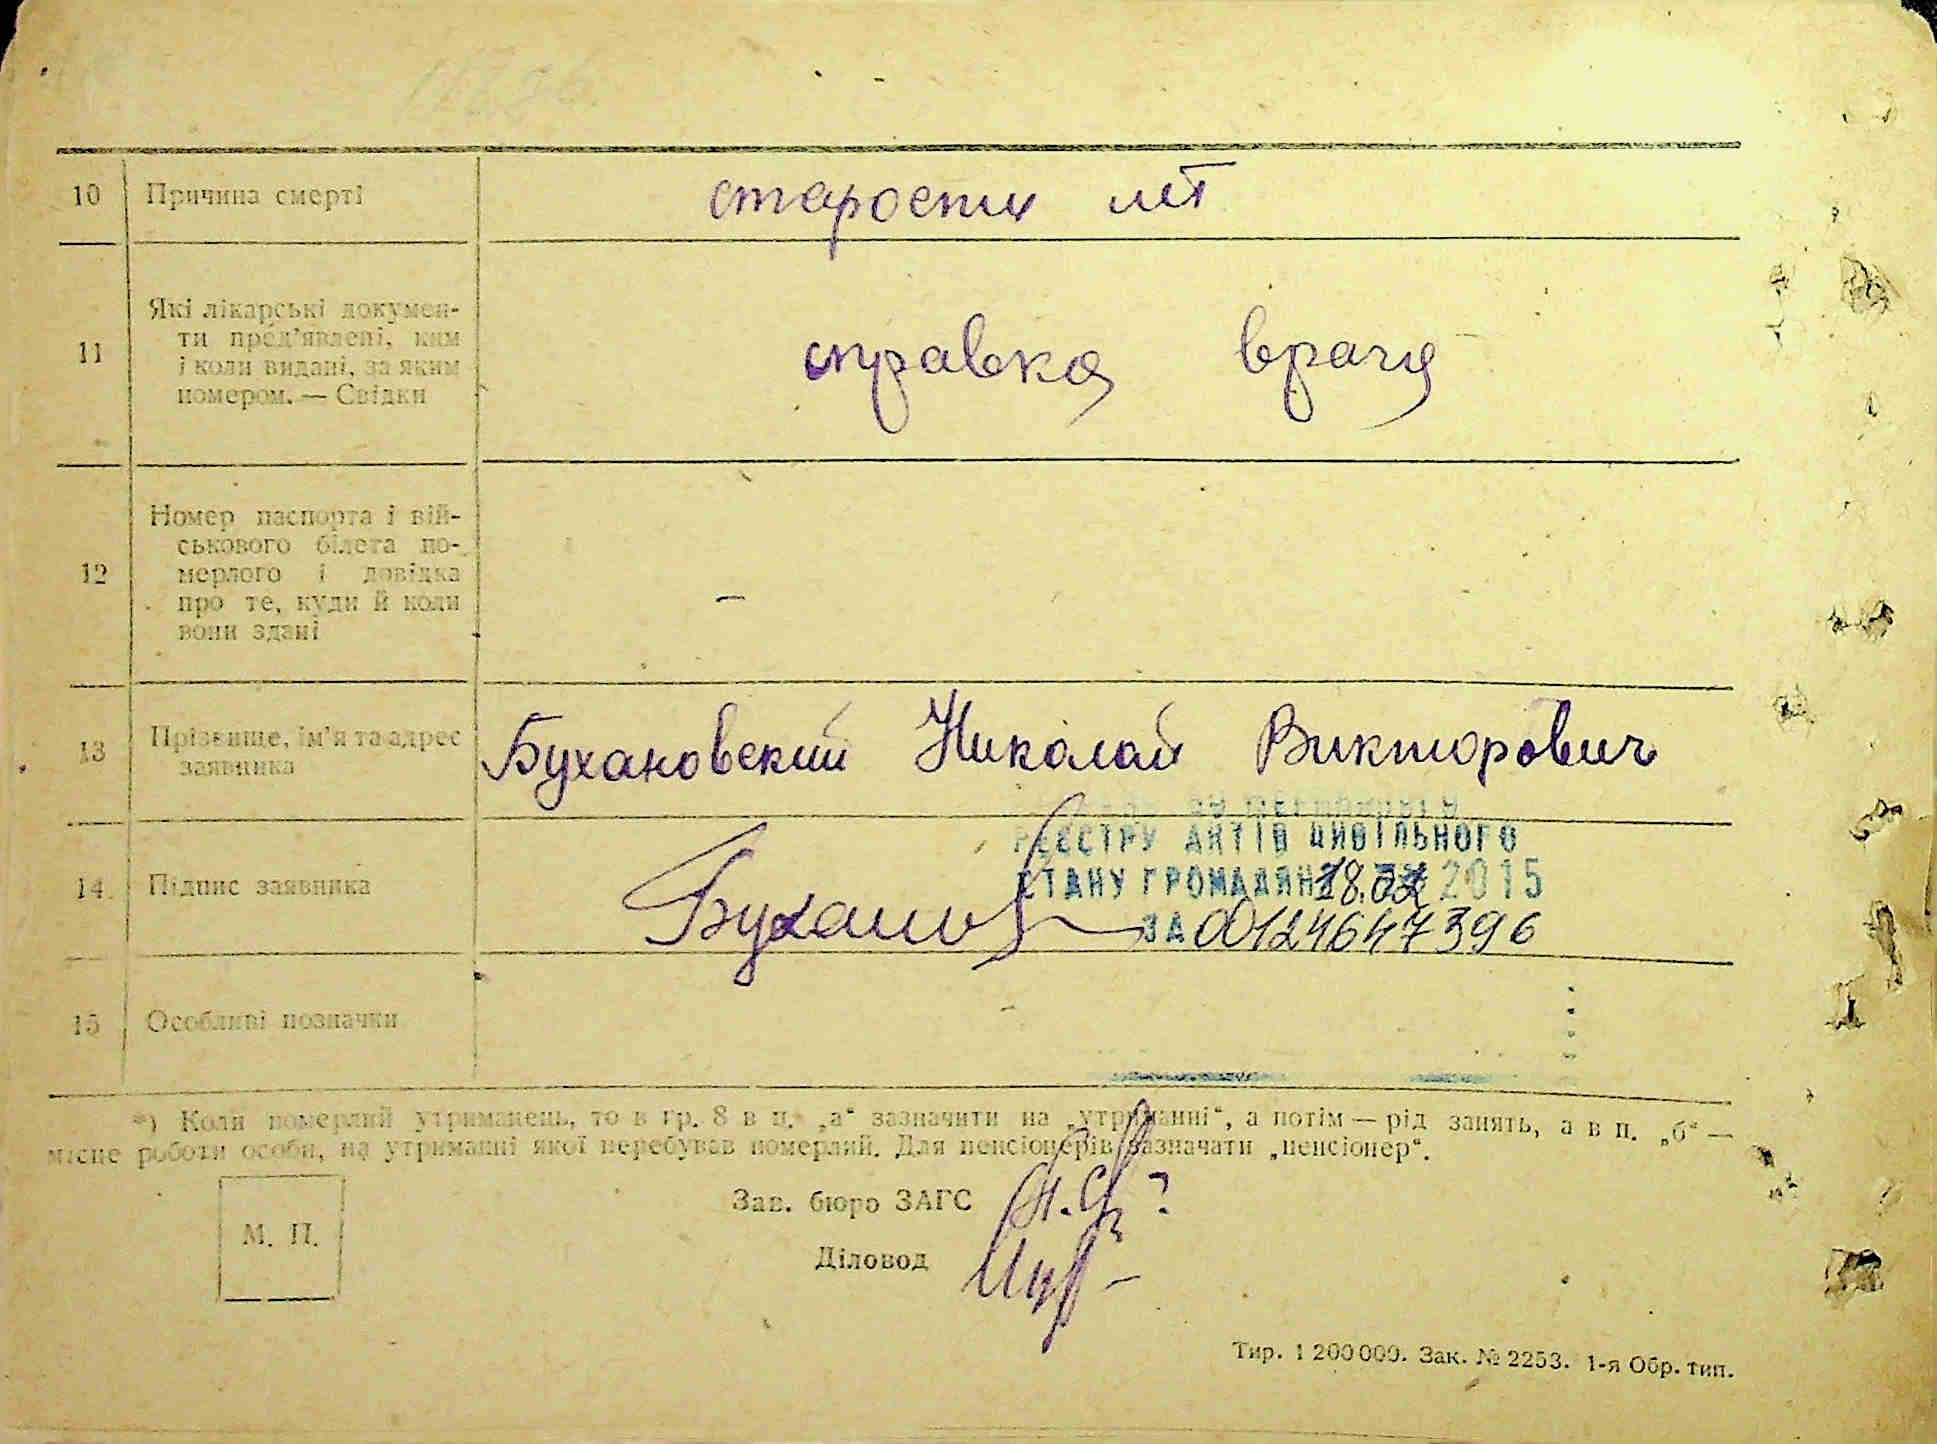 10 Причина смерті старости лет
11 Які лікарські докумен-
ти пред'явлені, ким
і коли видані, за яким
номером. — Свідки
справка врача
12 Номер паспорта і вій-
ськового білета по-
мерлого і довідка
про те, куди й коли
вони здані
—
13 Прізвище, ім'я та адрес
заявника
Бухановский Николай Викторович
РЕЄСТРУ АКТІВ ЦИВІЛЬНОГО
СТАНУ ГРОМАДЯН 2015
14 Підпис заявника
ЗА 00124647396
15 Особливі позначки
*) Коли померлий утриманець, то в гр. 8 в п. „а“ зазначити на „утриманні“, а потім — рід занять, а в п. „б“ —
місце роботи особи, на утриманні якої перебував померлий. Для пенсіонерів зазначати „пенсіонер“.
М. П.
Зав. бюро ЗАГС
Діловод
Тир. 1 200 000. Зак. № 2253. 1-я Обр. тип.